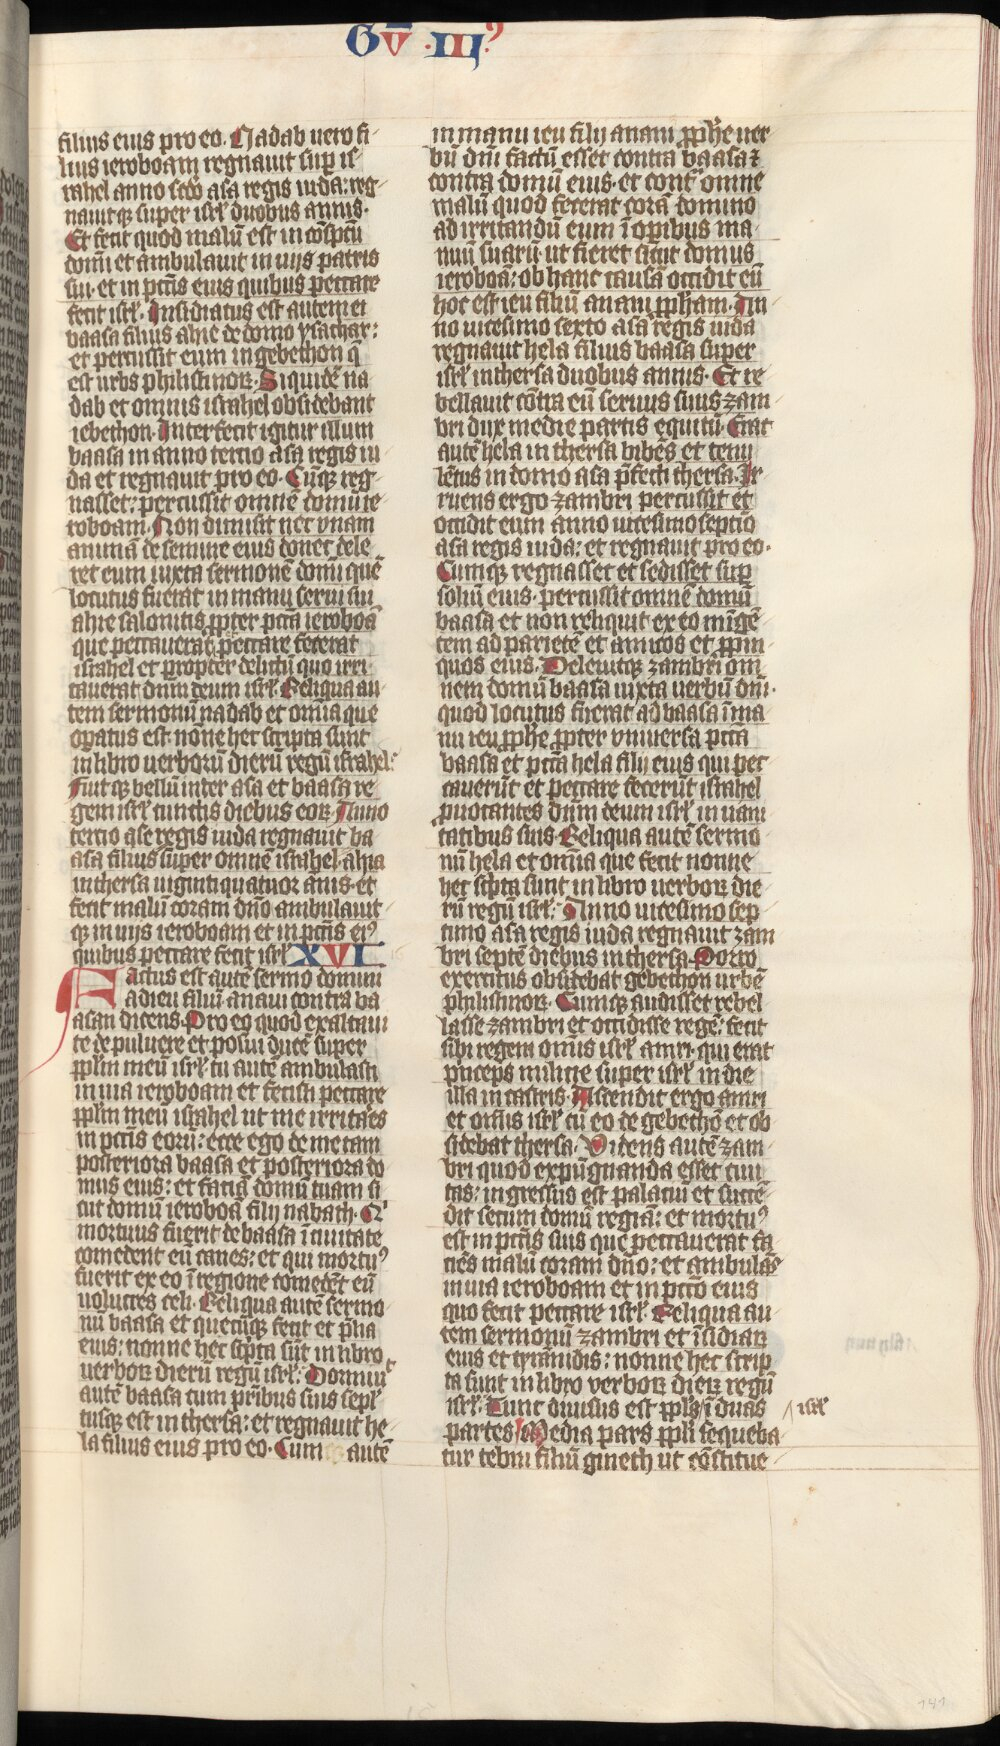 Gū · III ·
filius eius pro eo. Nadab uero fi
lius ieroboam regnauit sup is
rahel anno scdo asa regis iuda: reg
nauitqꝫ super isrł duobus annis.
Et fecit quod malū est in cōspcū
domi et ambulauit in uijs patris
sui. et in pctīs eius quibus peccare
fecit isrł. Insidiatus est autem ei
baasa filius ahie de domo ysachar:
et percussit eum in gebethon q̄
est urbs philistinoꝝ. Siquidē na
dab et omnis israhel obsidebant
iebethon. Interfecit igitur illum
baasa in anno tercio asa regis iu
da et regnauit pro eo. Cūqꝫ reg
nasset: percussit omnē domū ie
roboam. Non dimisit nec vnam
animā de semine eius donec dele
ret eum iuxta sermonē domi quē
locutus fuerat in manu serui sui
ahie salonitis ꝓpter pctā ieroboā
que peccauerat et peccare fecerat
israhel et propter delictū quo irri
tauerat dnm deum isrł. Reliqua au
tem sermonū nadab et omīa que
opatus est nōne hec scripta sunt
in libro uerborū dierū regū israhel:
Fuitqꝫ bellū inter asa et baasa re
gem isrł cunctis diebus eoꝝ. Anno
tercio ase regis iuda regnauit ba
asa filius super omne israhel ahia
in thersa uiginti quatuor anis. et
fecit malū coram dño ambulauit
qꝫ in uijs ieroboam et in pctīs ei⁹
quibus peccare fecit isrł XVI
Factus est autē sermo domini
ad ieu filiū anani contra ba
asan dicens. Pro eo quod exaltaui
te de puluere et posui ducē super
pplm meū isrł. tu autē ambulasti
in uia ieroboam et fecisti peccare
pplm meū israhel ut me irritares
in pctīs eorū: ecce ego demetam
posteriora baasa et posteriora do
mus eius: et faciā domū tuam si
cut domū ieroboā filij nabath. Q¹
mortuus fuerit de baasa ī ciuitate
comedent eū canes: et qui mortu⁹
fuerit ex eo ī regione comedēt eū
uolucres celi. Reliqua autē sermo
nū baasa et quecūqꝫ fecit et p̄lia
eius: nonne hec scpta sūt in libro
uerboꝝ dierū regū isrł: Dormiuit
autē baasa cum prībus suis sepł
tusqꝫ est in thersa: et regnauit he
la filius eius pro eo. Cum autē
in manu ieu filij anani ꝓphē uer
bū dnī factū esset contra baasa ꝛ
contra domū eius. et contʳ omne
malū quod fecerat corā domino
ad irritandū eum ī opibus ma
nuū suarū. ut fieret sicut domus
ieroboā: ob hanc causā occidit eū
hoc est ieu filiū anani ꝓpham. An
no uicesimo sexto asa regis iuda
regnauit hela filius baasa super
isrł in thersa duobus annis. Et re
bellauit cōtra eū seruus suus zam
bri dux medie partis equitū. Erat
autē hela in thersa bibēs et temu
lētus in domo asa p̄fecti thersa. Ir
ruens ergo zambri percussit et
occidit eum anno uicesimo septīo
asa regis iuda: et regnauit pro eo.
Cumqꝫ regnasset et sedisset sup
soliū eius. percussit omnē domū
baasa et non reliquit ex eo mīgē
tem ad parietē et amicos et ꝓpin
quos eius. Deleuitqꝫ zambri om
nem domū baasa iuxta uerbū dnī.
quod locutus fuerat ad baasa ī ma
nu ieu ꝓphē ꝓpter vniuersa pctā
baasa et pctā hela filij eius qui pec
cauerūt et peccare fecerūt israhel
puocantes dnm deum isrł in uani
tatibus suis. Reliqua autē sermo
nū hela et omīa que fecit nonne
hec scpta sunt in libro uerboꝝ die
rū regū isrł: Anno uicesimo sep
timo asa regis iuda regnauit zam
bri septē diebus in thersa. Porro
exercitus obsidebat gebethon urbē
philistinoꝝ. Cumqꝫ audisset rebel
lasse zambri et occidisse regē: fecit
sibi regem omīs isrł amri. qui erat
princeps milicie super isrł in die
illa in castris. Ascendit ergo amri
et omīs isrł cū eo de gebethō et ob
sidebat thersa. Videns autē zam
bri quod expugnanda esset ciui
tas: ingressus est palaciū et succē
dit secum domū regiā: et mortu⁹
est in pctīs suis que peccauerat fa
ciēs malū coram dño: et ambulās
in uia ieroboam et in pctō eius
quo fecit peccare isrł. Reliqua au
tem sermonū zambri et īsidiaꝝ
eius et tyrānidis: nonne hec scrip
ta sunt in libro verboꝝ dieꝝ regū
isrł. Tunc diuisus est ppls ī duas
isrł
partes. Media pars ppli sequeba
tur tebni filiū gineth ut cōstitue
141